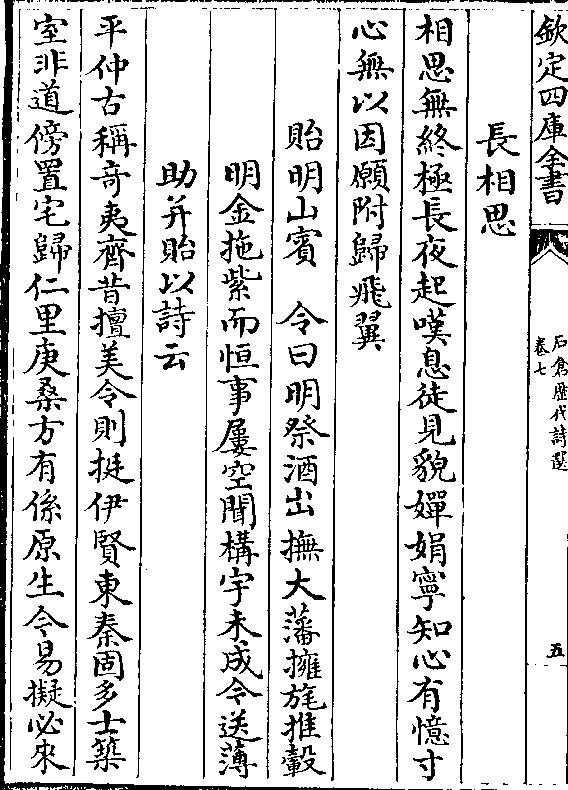 欽定四庫全書
石倉歷代詩選
卷七
五
長相思
相思無終極長夜起嘆息徒見貌嬋娟寧知心有憶寸
心無以因願附歸飛翼
貽明山賓　令曰明祭酒出撫大藩擁旄推轂
明金拖紫而恒事屢空聞構宇未成今送薄
助并貽以詩云
平仲古稱竒夷齊昔擅美令則挺伊賢東秦固多士築
室非道傍置宅歸仁里庚桑方有係原生今易擬必來